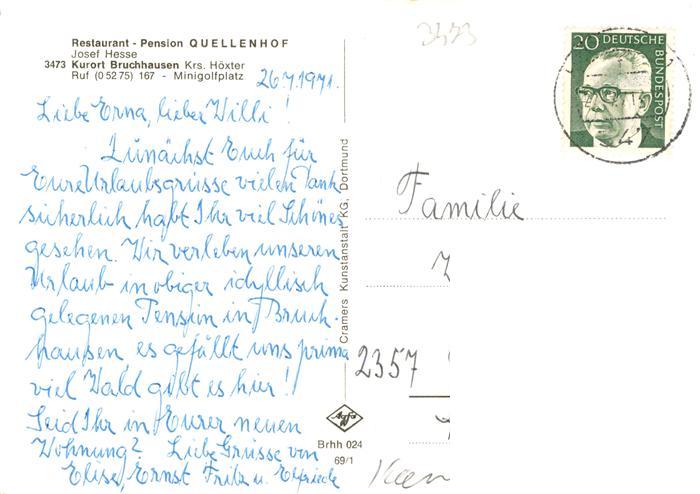 Restaurant - Pension QUELLENHOF
Josef Hesse
3473 Kurort Bruchhausen Krs. Höxter
Ruf (0 52 75) 167 - Minigolfplatz
26.7.1971.
Liebe Erna, lieber Willi!
Zunächst Euch für
Eure Urlaubsgrüsse vielen Dank
sicherlich habt Ihr viel Schönes
gesehen. Wir verleben unseren
Urlaub in obiger idyllisch
gelegenen Pension in Bruch-
hausen, es gefällt uns prima
viel Wald gibt es hier!
Seid Ihr in Eurer neuen
Wohnung? Liebe Grüsse von
Elise, Ernst Fritz u. Elfriede
Cramers Kunstanstalt KG, Dortmund
Agfa
Brhh 024
69/1
3473
20 DEUTSCHE
BUNDESPOST
Familie
2357